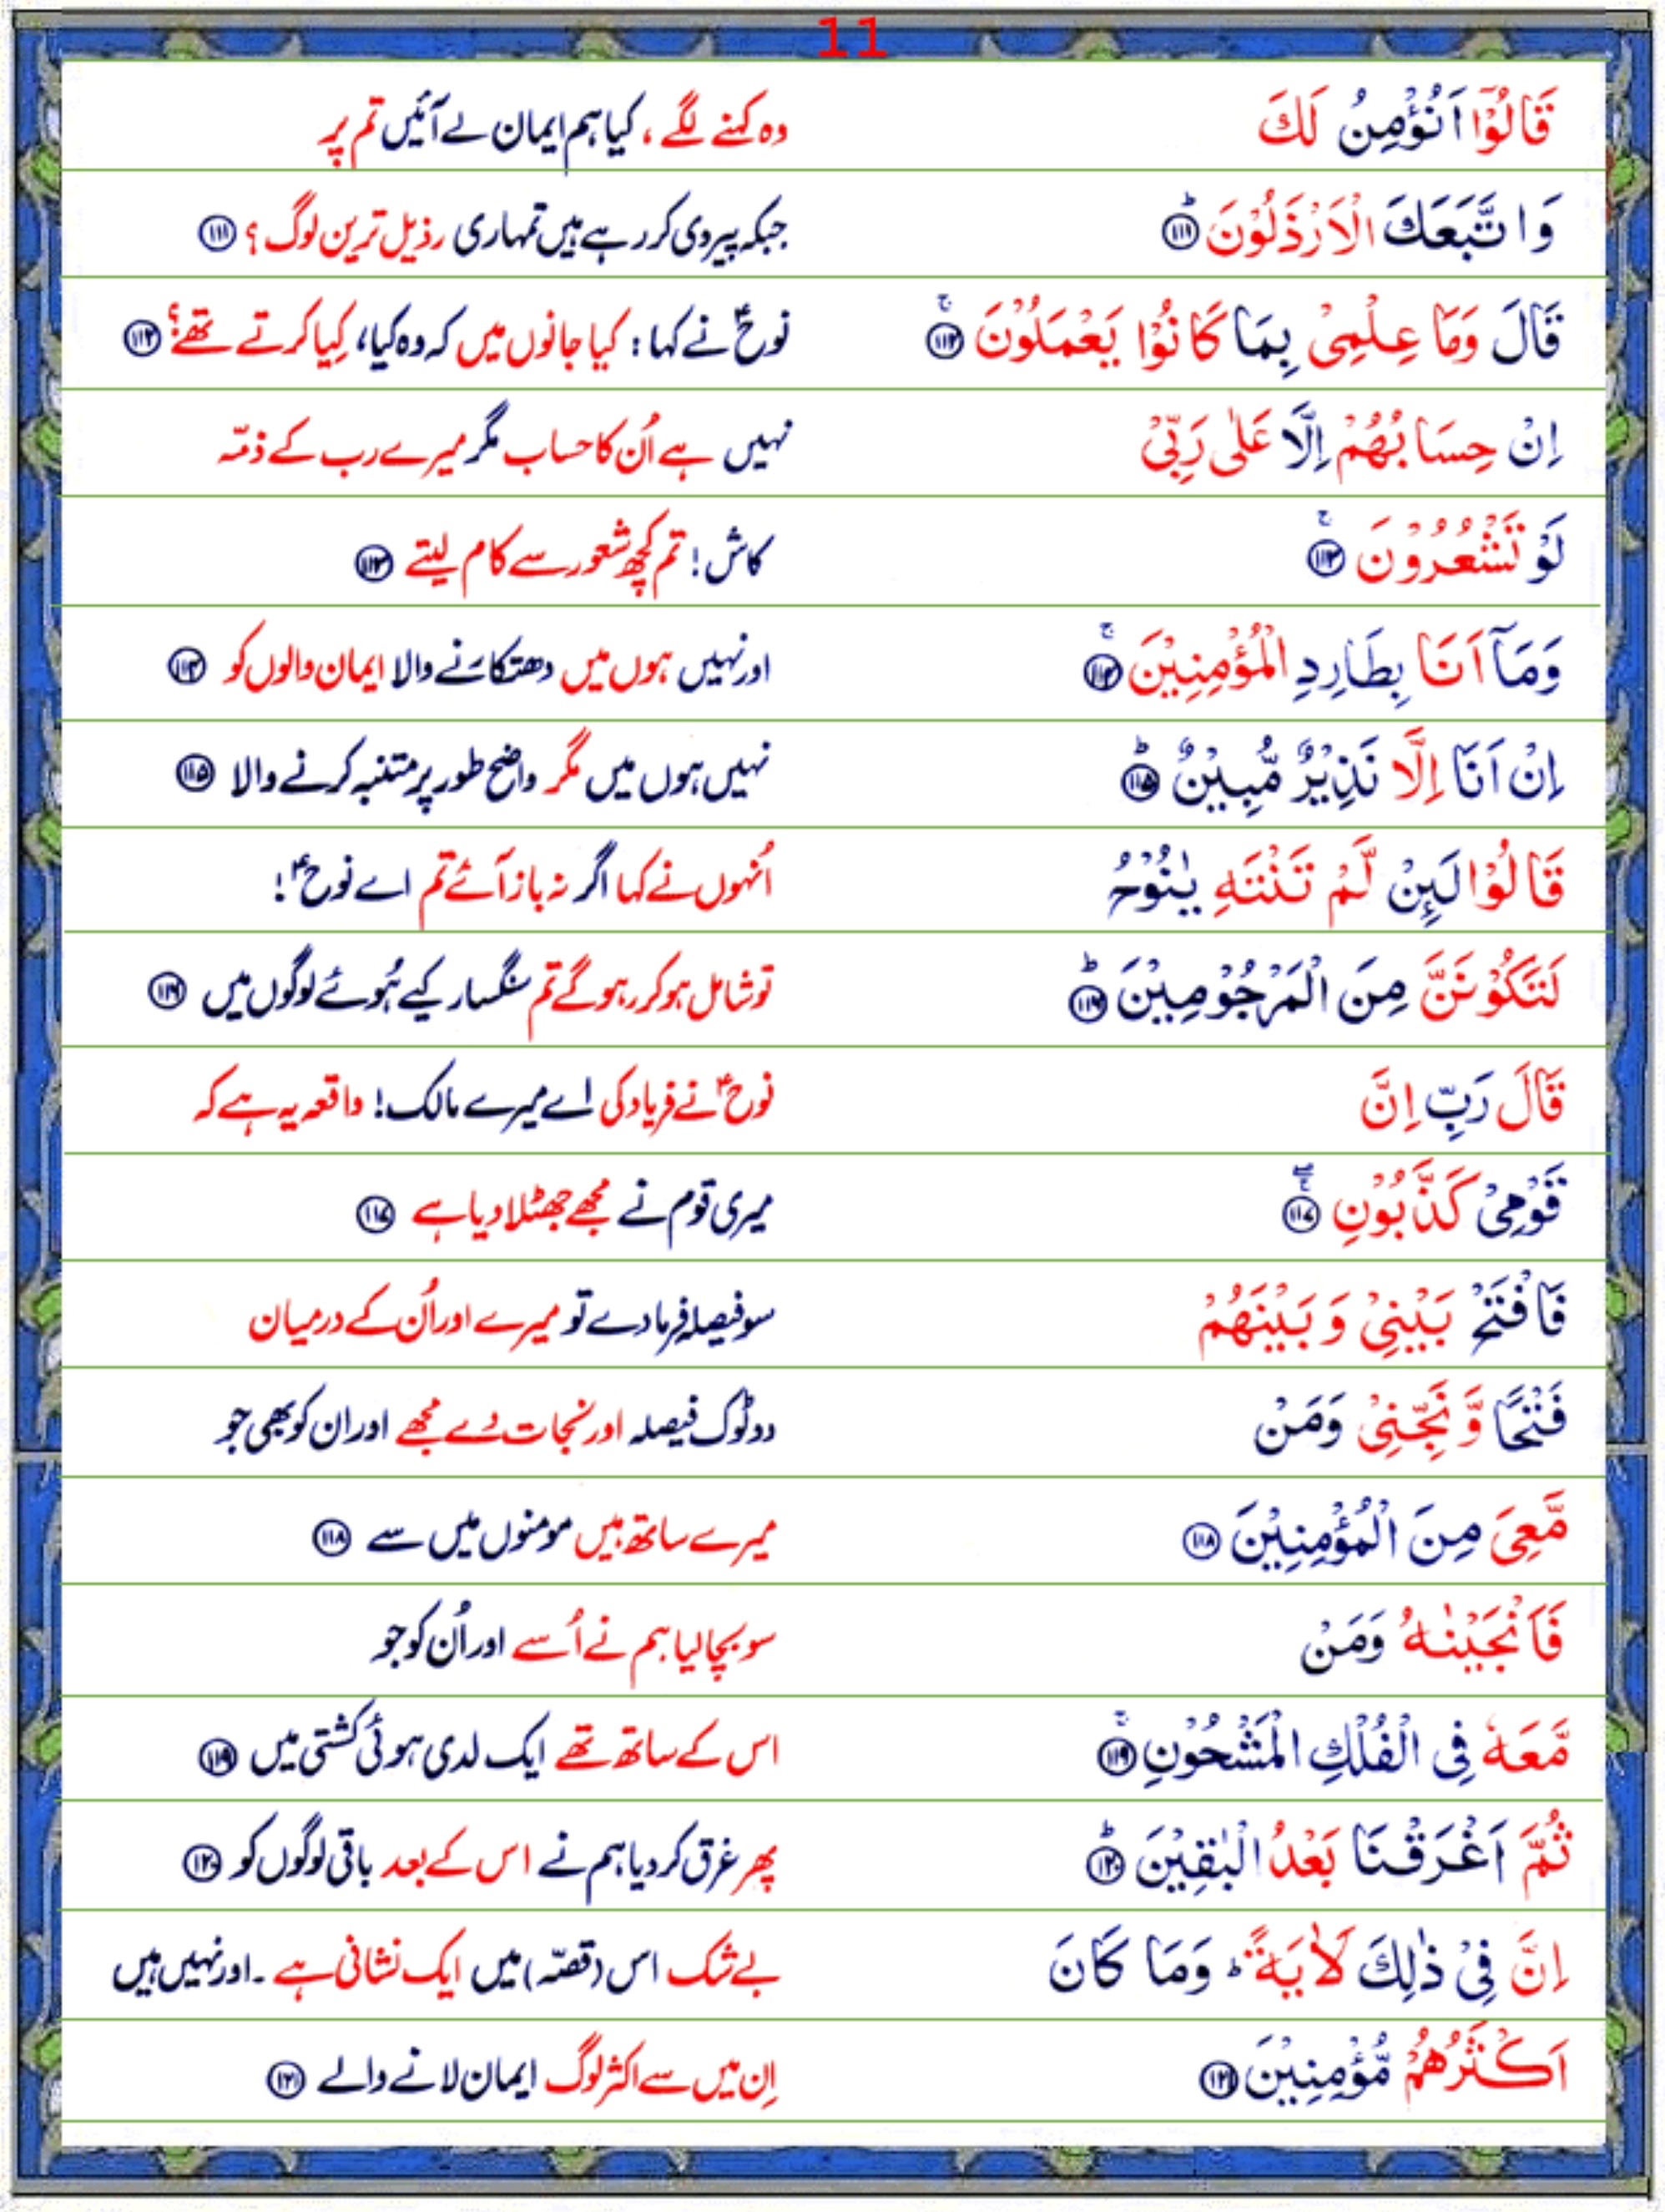 11
قَالُوْۤا اَنُؤْمِنُ لَكَ وہ کہنے لگے، کیا ہم ایمان لے آئیں تم پر
وَاتَّبَعَكَ الْاَرْذَلُوْنَ ؕ ۝۱۱۱ جبکہ پیروی کر رہے ہیں تمہاری رذیل ترین لوگ؟ ۝۱۱۱
قَالَ وَمَا عِلْمِیْ بِمَا كَانُوْا یَعْمَلُوْنَ ۚ ۝۱۱۲ نوحؑ نے کہا: کیا جانوں میں کہ وہ کیا، کِیا کرتے تھے؟ ۝۱۱۲
اِنْ حِسَابُهُمْ اِلَّا عَلٰی رَبِّیْ نہیں ہے اُن کا حساب مگر میرے رب کے ذمّہ
لَوْ تَشْعُرُوْنَ ۚ ۝۱۱۳ کاش! تم کچھ شعور سے کام لیتے ۝۱۱۳
وَمَاۤ اَنَا بِطَارِدِ الْمُؤْمِنِیْنَ ۚ ۝۱۱۴ اور نہیں ہوں میں دھتکارنے والا ایمان والوں کو ۝۱۱۴
اِنْ اَنَا اِلَّا نَذِیْرٌ مُّبِیْنٌ ؕ ۝۱۱۵ نہیں ہوں میں مگر واضح طور پر متنبہ کرنے والا ۝۱۱۵
قَالُوْا لَىِٕنْ لَّمْ تَنْتَهِ یٰنُوْحُ اُنہوں نے کہا اگر نہ باز آئے تم اے نوحؑ!
لَتَكُوْنَنَّ مِنَ الْمَرْجُوْمِیْنَ ؕ ۝۱۱۶ تو شامل ہو کر رہو گے تم سنگسار کیے ہُوئے لوگوں میں ۝۱۱۶
قَالَ رَبِّ اِنَّ نوحؑ نے فریاد کی اے میرے مالک! واقعہ یہ ہے کہ
قَوْمِیْ كَذَّبُوْنِ ۚۖ ۝۱۱۷ میری قوم نے مجھے جھٹلا دیا ہے ۝۱۱۷
فَافْتَحْ بَیْنِیْ وَبَیْنَهُمْ سو فیصلہ فرما دے تو میرے اور اُن کے درمیان
فَتْحًا وَّنَجِّنِیْ وَمَنْ دو ٹوک فیصلہ اور نجات دے مجھے اور ان کو بھی جو
مَّعِیَ مِنَ الْمُؤْمِنِیْنَ ۝۱۱۸ میرے ساتھ ہیں مومنوں میں سے ۝۱۱۸
فَاَنْجَیْنٰهُ وَمَنْ سو بچا لیا ہم نے اُسے اور اُن کو جو
مَّعَهٗ فِی الْفُلْكِ الْمَشْحُوْنِ ۚ ۝۱۱۹ اس کے ساتھ تھے ایک لدی ہوئی کشتی میں ۝۱۱۹
ثُمَّ اَغْرَقْنَا بَعْدُ الْبٰقِیْنَ ؕ ۝۱۲۰ پھر غرق کر دیا ہم نے اس کے بعد باقی لوگوں کو ۝۱۲۰
اِنَّ فِیْ ذٰلِكَ لَاٰیَةً ؕ وَمَا كَانَ بے شک اس (قصّہ) میں ایک نشانی ہے۔ اور نہیں ہیں
اَكْثَرُهُمْ مُّؤْمِنِیْنَ ۝۱۲۱ اِن میں سے اکثر لوگ ایمان لانے والے ۝۱۲۱